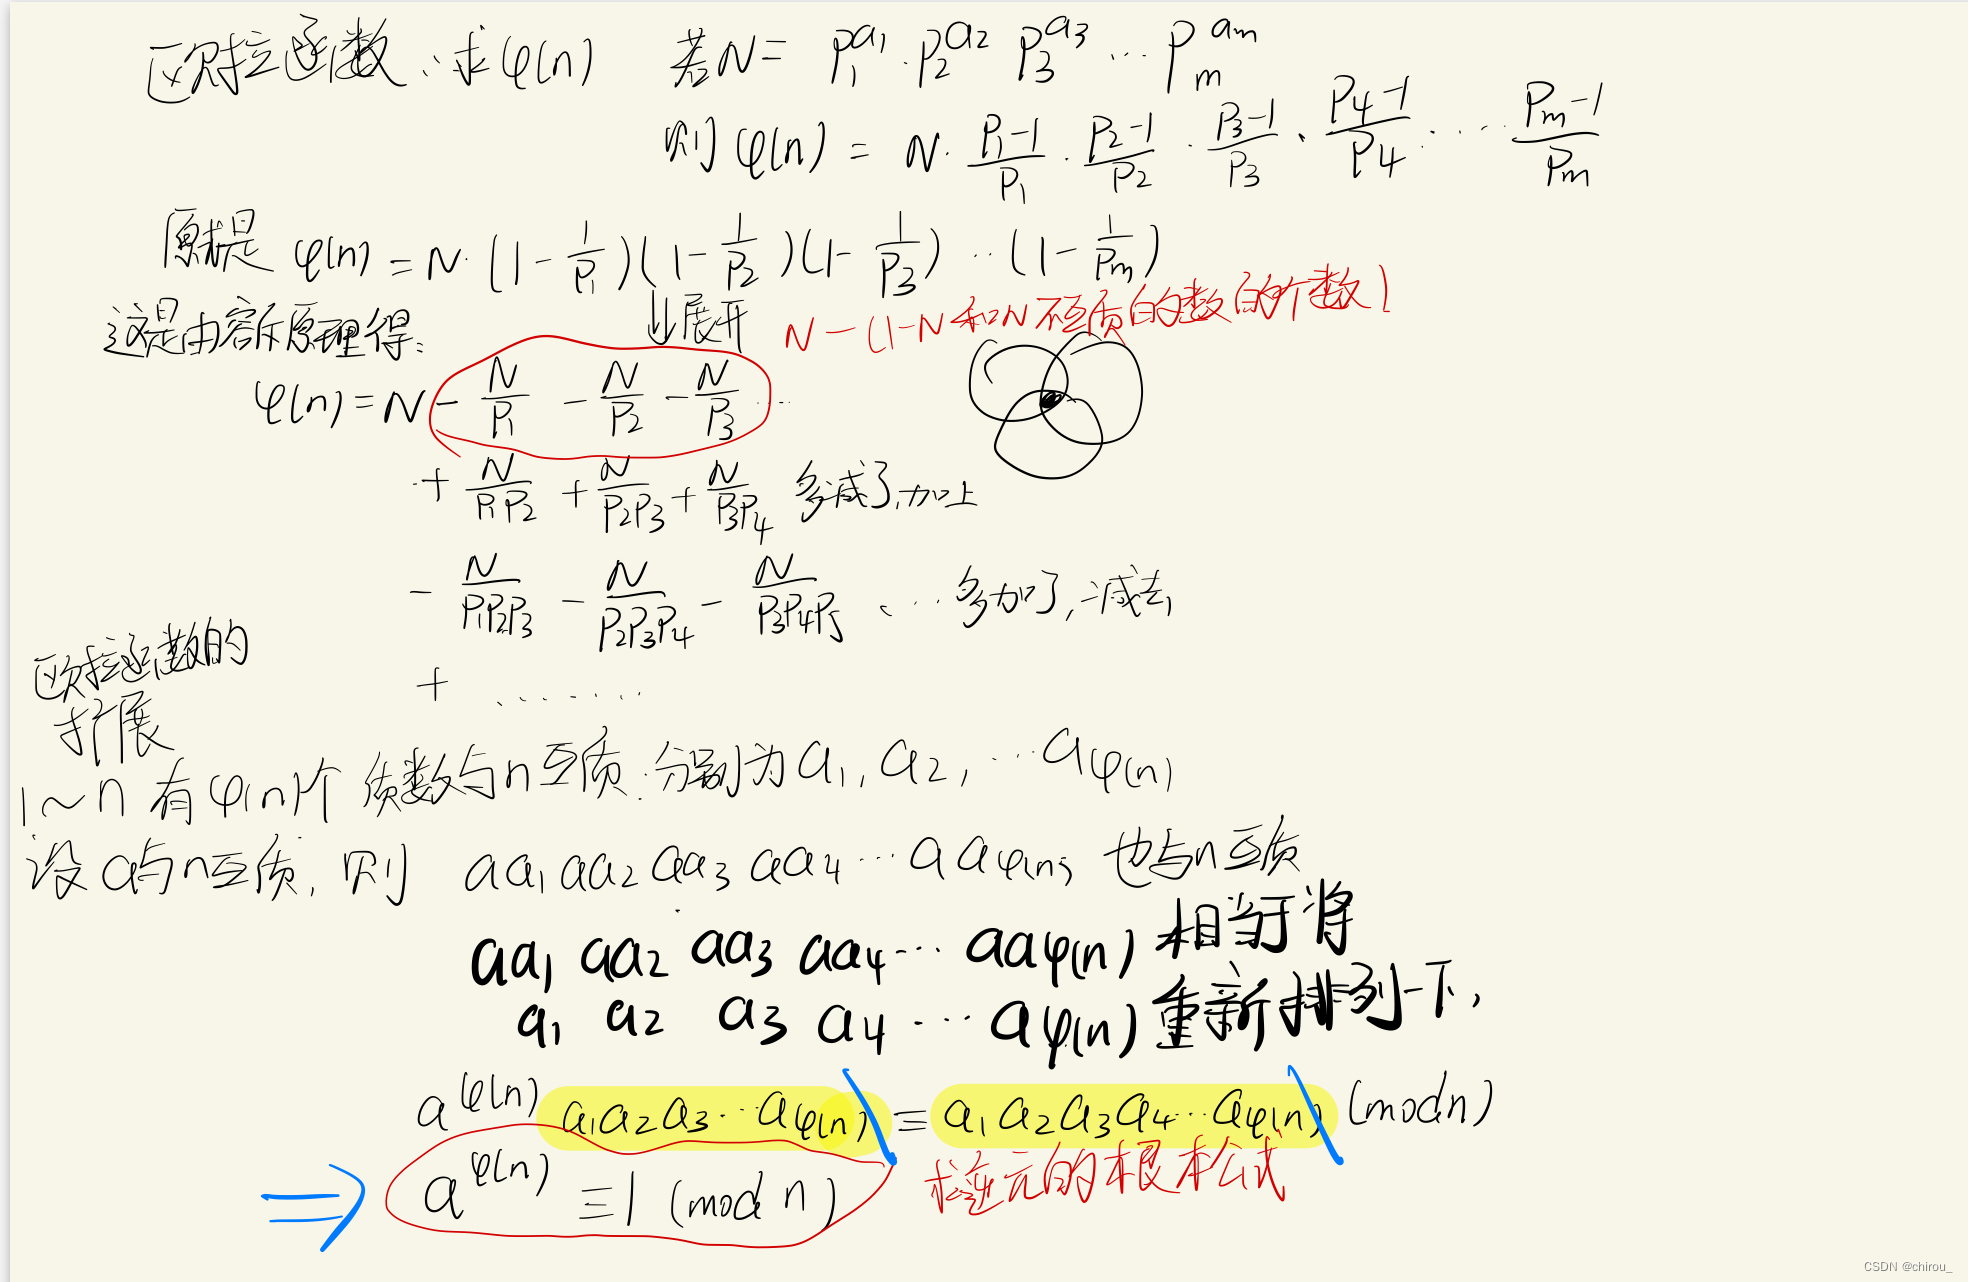 欧拉函数：求φ(n) 若N= P₁^a₁·P₂^a₂ P₃^a₃ … Pₘ^aₘ
则 φ(n) = N· (P₁-1)/P₁ · (P₂-1)/P₂ · (P₃-1)/P₃ · (P₄-1)/P₄ · … (Pₘ-1)/Pₘ
原式是 φ(n) = N·(1-1/P₁)(1-1/P₂)(1-1/P₃)…(1-1/Pₘ)
⇓展开
N-(1-N和N不互质的数的个数)
这是由容斥原理得:
φ(n)=N - N/P₁ - N/P₂ - N/P₃ …
+ N/P₁P₂ + N/P₂P₃ + N/P₃P₄ 多减了,加上
- N/P₁P₂P₃ - N/P₂P₃P₄ - N/P₃P₄P₅ … 多加了,减去
+ ……
欧拉函数的
扩展
1~n 有φ(n)个 质数与n互质.分别为a₁,a₂,…a_φ(n)
设a与n互质,则 aa₁ aa₂ aa₃ aa₄…aa_φ(n) 也与n互质
aa₁ aa₂ aa₃ aa₄…aa_φ(n) 相当于将
a₁ a₂ a₃ a₄…a_φ(n) 重新排列一下,
a^φ(n) a₁a₂a₃…a_φ(n) ≡ a₁a₂a₃a₄…a_φ(n) (mod n)
⇒ a^φ(n) ≡1 (mod n) 求逆元的根本公式
CSDN @chirou_